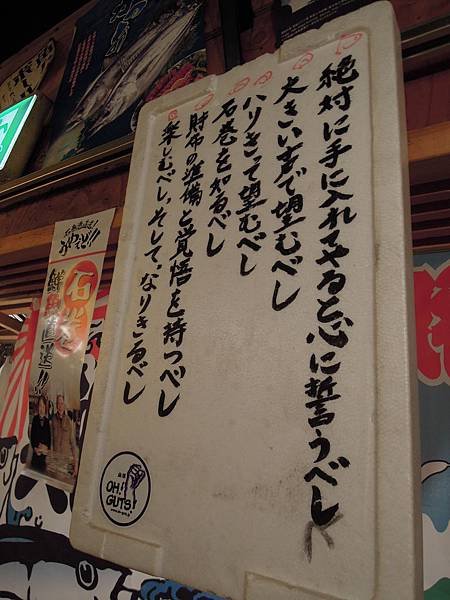 一、絶対に手に入れてやると心に誓うべし
一、大きい声で望むべし
一、ハリきって望むべし
一、石巻を知るべし
一、財布の準備と覚悟を持つべし
一、楽しむべし、そして、なりきるべし
OH!
GUTS!
石巻
鮮
直送!!